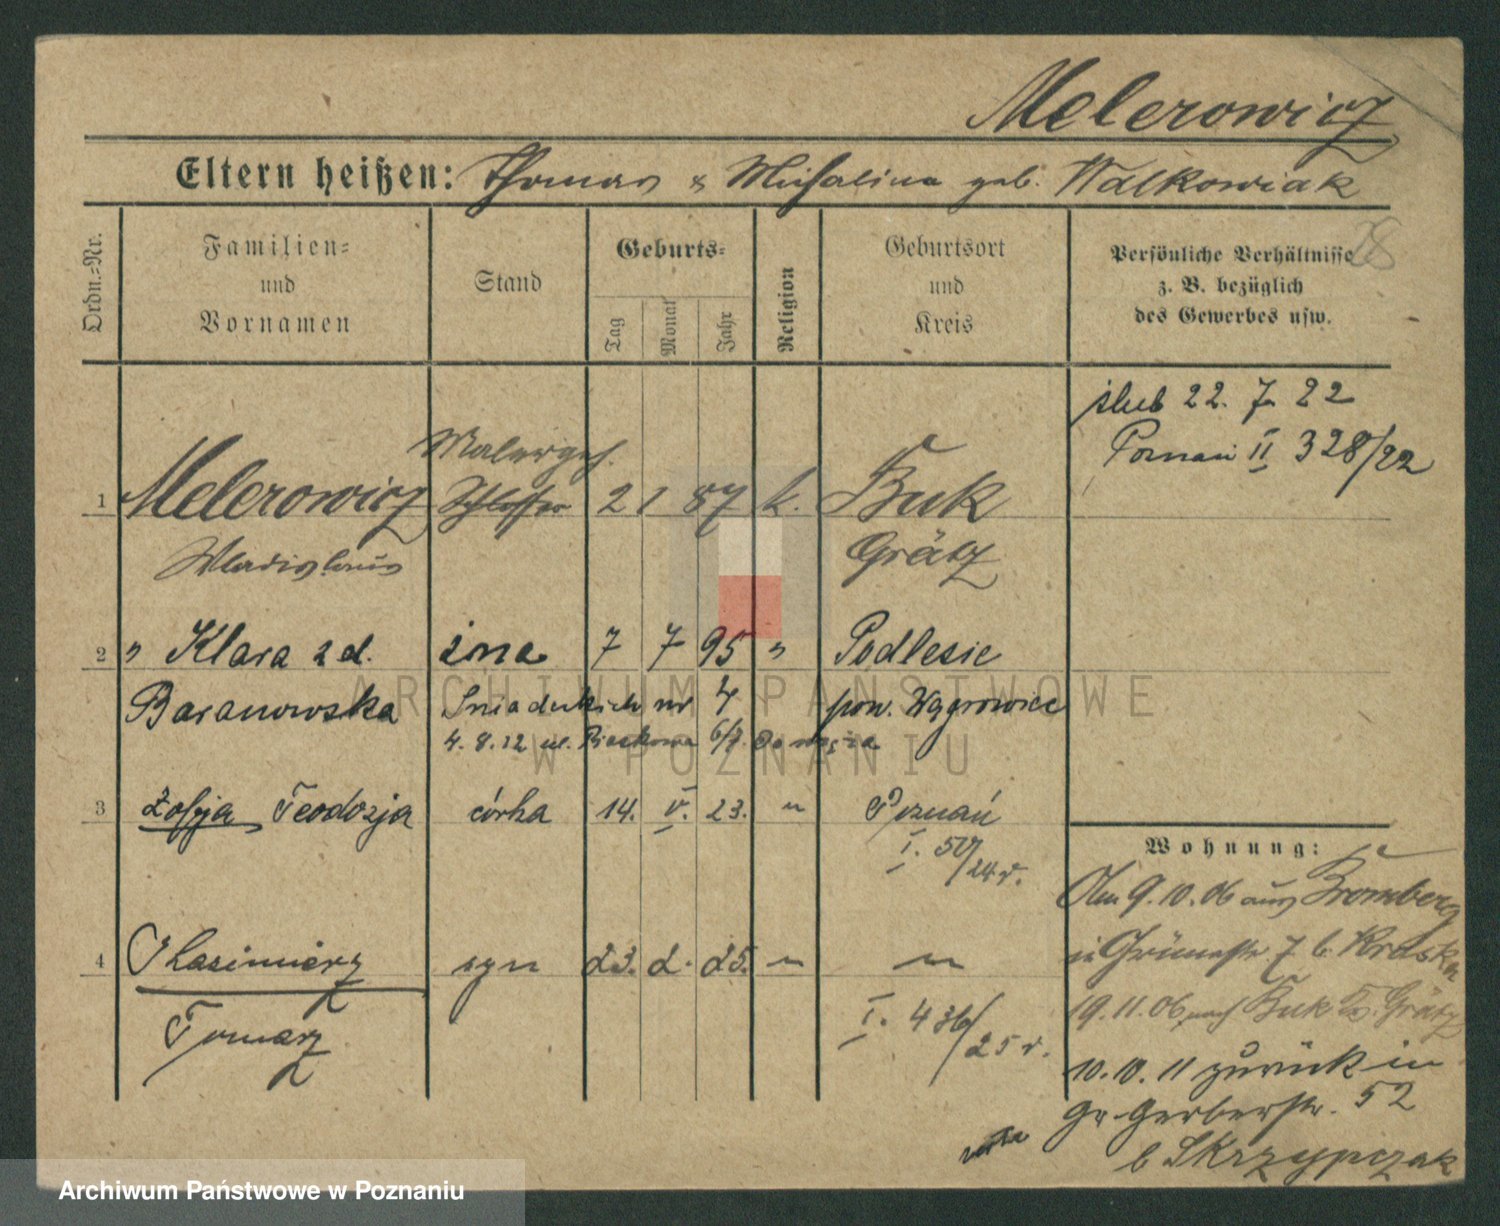 Melerowicz
Eltern heißen: Thomas & Michalina geb. Walkowiak
28
Ordn.-Nr.
Familien-
und
Vornamen
Stand
Geburts-
Tag
Monat
Jahr
Religion
Geburtsort
und
Kreis
Persönliche Verhältnisse
z. B. bezüglich
des Gewerbes usw.
ślub 22. 7 22
Poznań II 328/22
Malergeh.
1 Melerowicz Schlosser 2 1 87 k. Buk
Wladislaus Grätz
2 " Klara z d. żona 7 7 95 " Podlesie
Baranowska Śniadeckich nr 4 pow. Wągrowiec
4.8.22 ul. Piaskowa 6/7. do męża
3 Zofja Teodozja córka 14. V. 23. " Poznań
I. 50/24 r.
4 Kazimierz syn 23. 2. 25. " "
Tomasz
I. 436/25 r.
Wohnung:
Am 9.10.06 aus Bromberg
in Grünestr. 7 b. Kraska
19.11.06 nach Buk Kr. Grätz
10.10.11 zurück in
Gr. Gerberstr. 52
b Skrzypczak
ARCHIWUM PAŃSTWOWE
W POZNANIU
Archiwum Państwowe w Poznaniu